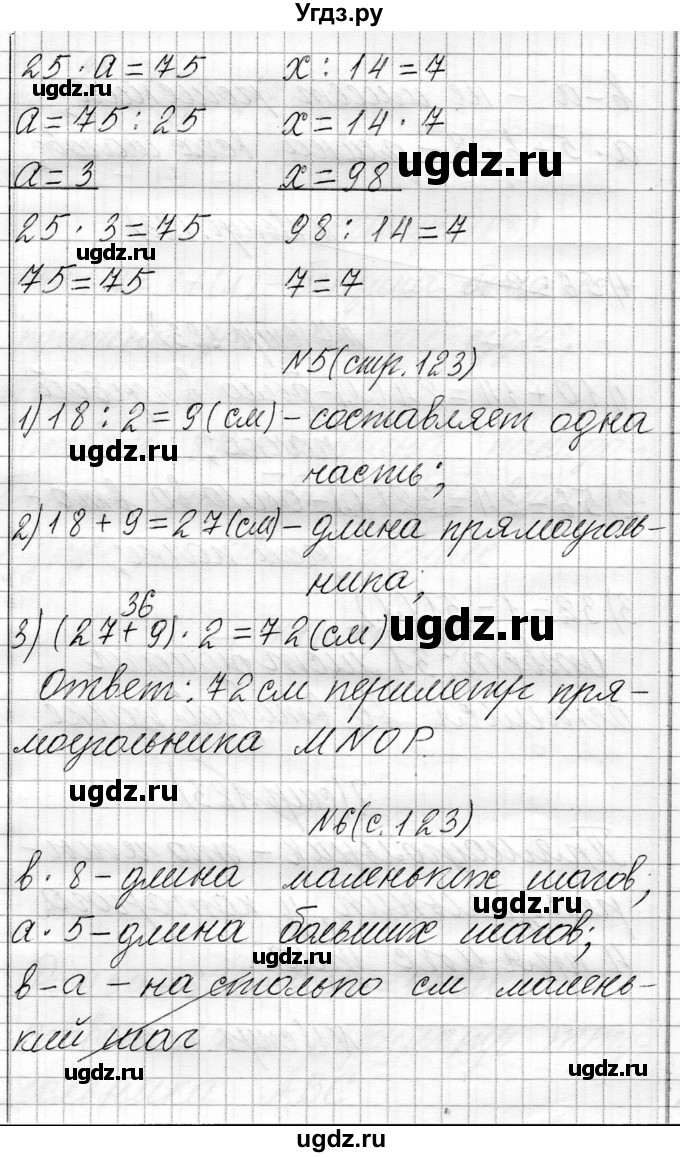 Угдз.ру
25 · a = 75 x : 14 = 7
a = 75 : 25 x = 14 · 7
ugdz.ru
ugdz.ru
a = 3 x = 98
25 · 3 = 75 98 : 14 = 7
ugdz.ru
75 = 75 7 = 7
N5(стр. 123)
1) 18 : 2 = 9 (см) – составляет одна
ugdz.ru
часть;
2) 18 + 9 = 27 (см) – длина прямоуголь-
ugdz.ru
ника;
36
3) (27 + 9) · 2 = 72 (см)
ugdz.ru
Ответ: 72 см периметр пря-
моугольника MNOP.
ugdz.ru
N6(с. 123)
в · 8 – длина маленьких шагов;
ugdz.ru
а · 5 – длина больших шагов;
ugdz.ru
в – а – на столько см малень-
кий шаг
ugdz.ru
ugdz.ru
ugdz.ru